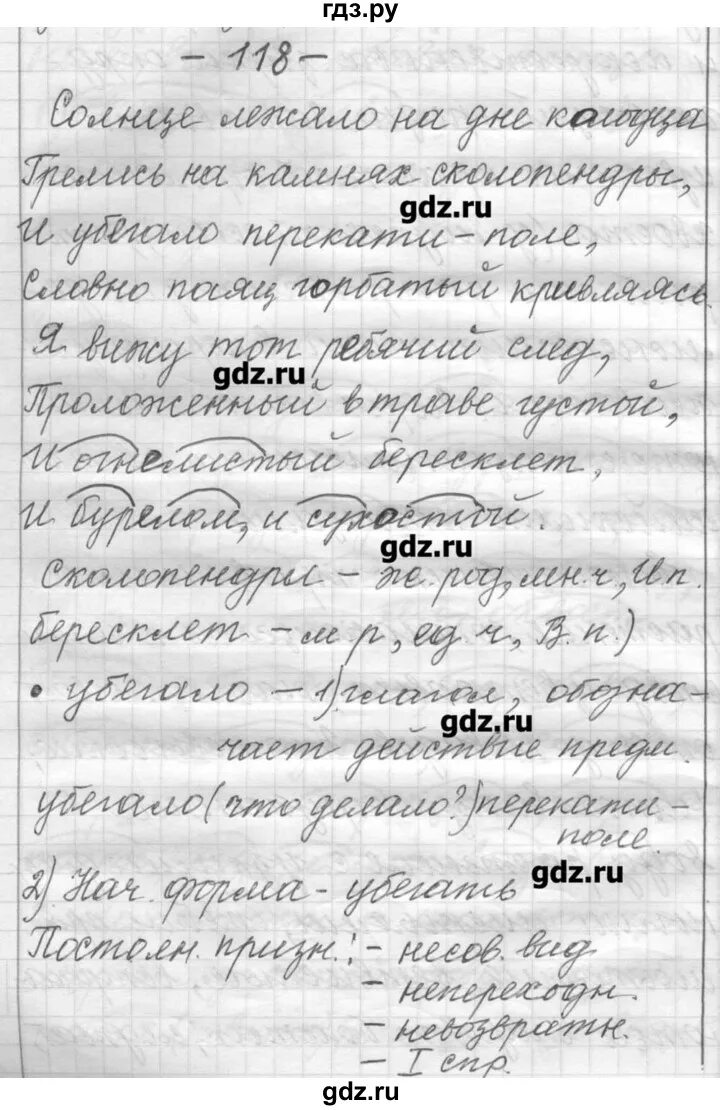 гдз.ру
- 118 -
Солнце лежало на дне колодца
Грелись на камнях сколопендры,
gdz.ru
И убегало перекати-поле,
Словно паяц горбатый кривляясь.
Я вижу тот ребячий след,
gdz.ru
Проложенный в траве густой,
И огнелистый бересклет,
И бурелом, и сухостой.
gdz.ru
Сколопендры - ж. род, мн.ч, И.п.
бересклет - м р, ед. ч, В. п.)
• убегало - 1) глагол, обозна-
gdz.ru
чает действие предм.
убегало (что делало?) перекати-
поле.
gdz.ru
2) Нач. форма - убегать
Постоян. призн.: - несов. вид
- непереходн.
- невозвратн.
- I спр.
gdz.ru